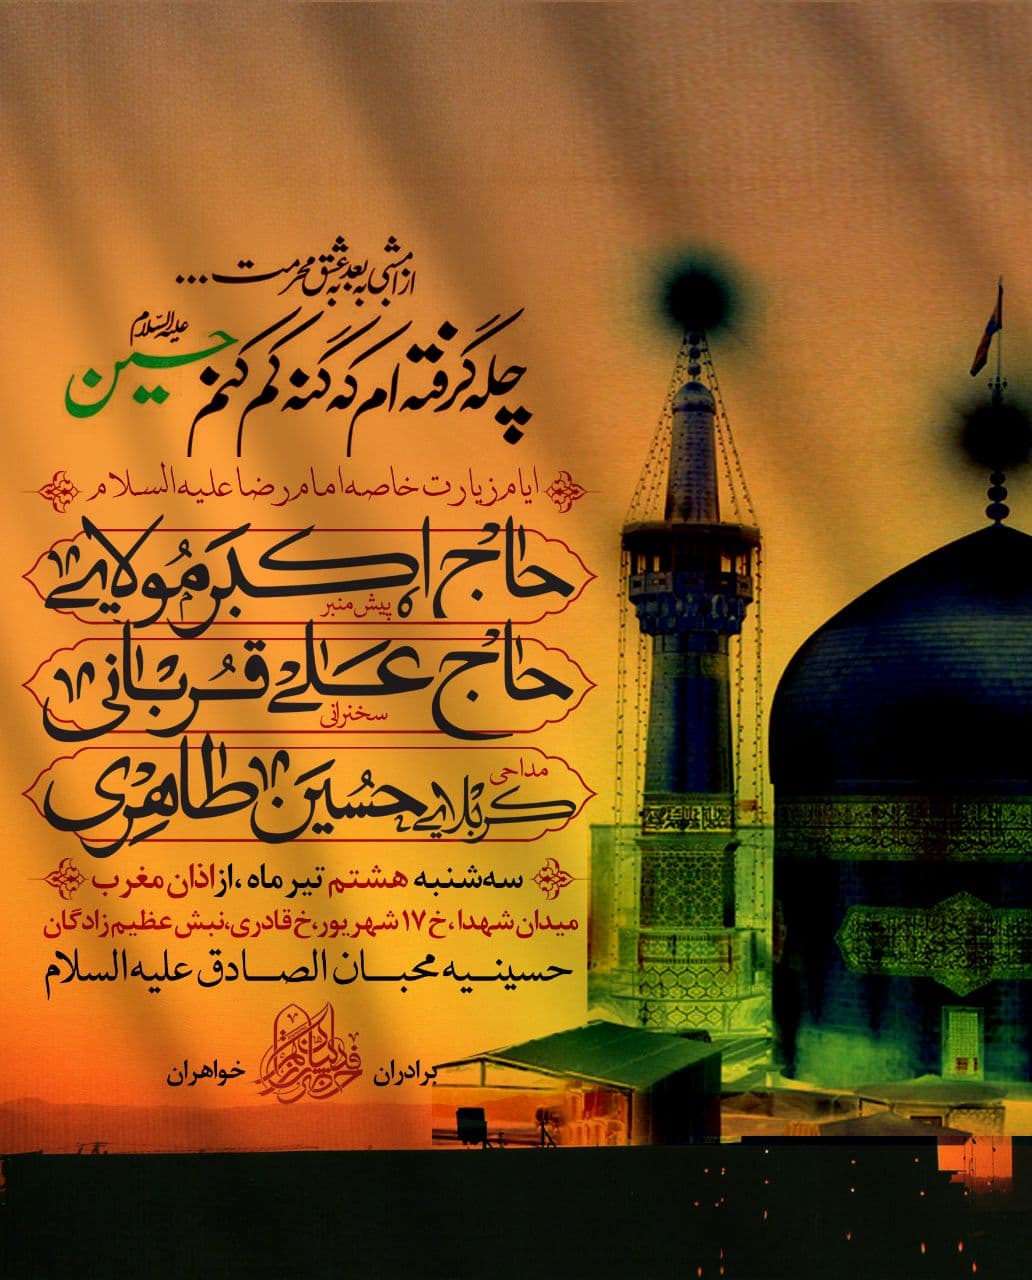 از امشبی به بعد به عشق محرمت...
چله گرفته ام که گنه کم کنم حسین علیه السلام
ایام زیارت خاصه امام رضا علیه السلام
حاج اکبر مولایی
پیش منبر
حاج علی قربانی
سخنرانی
مداحی
کربلایی حسین طاهری
سه‌شنبه هشتم تیر ماه ، از اذان مغرب
میدان شهدا، خ ۱۷ شهریور، خ قادری، نبش عظیم زادگان
حسینیه محبان الصادق علیه السلام
برادران خواهران